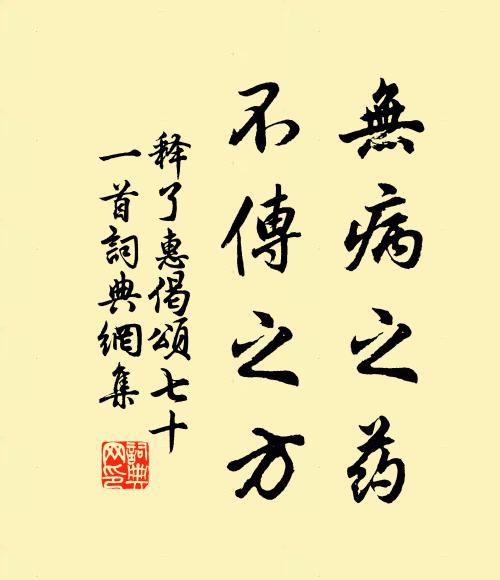 無病之药
不傳之方
释了惠偈頌七十
一首詞典網集
詞典
网印